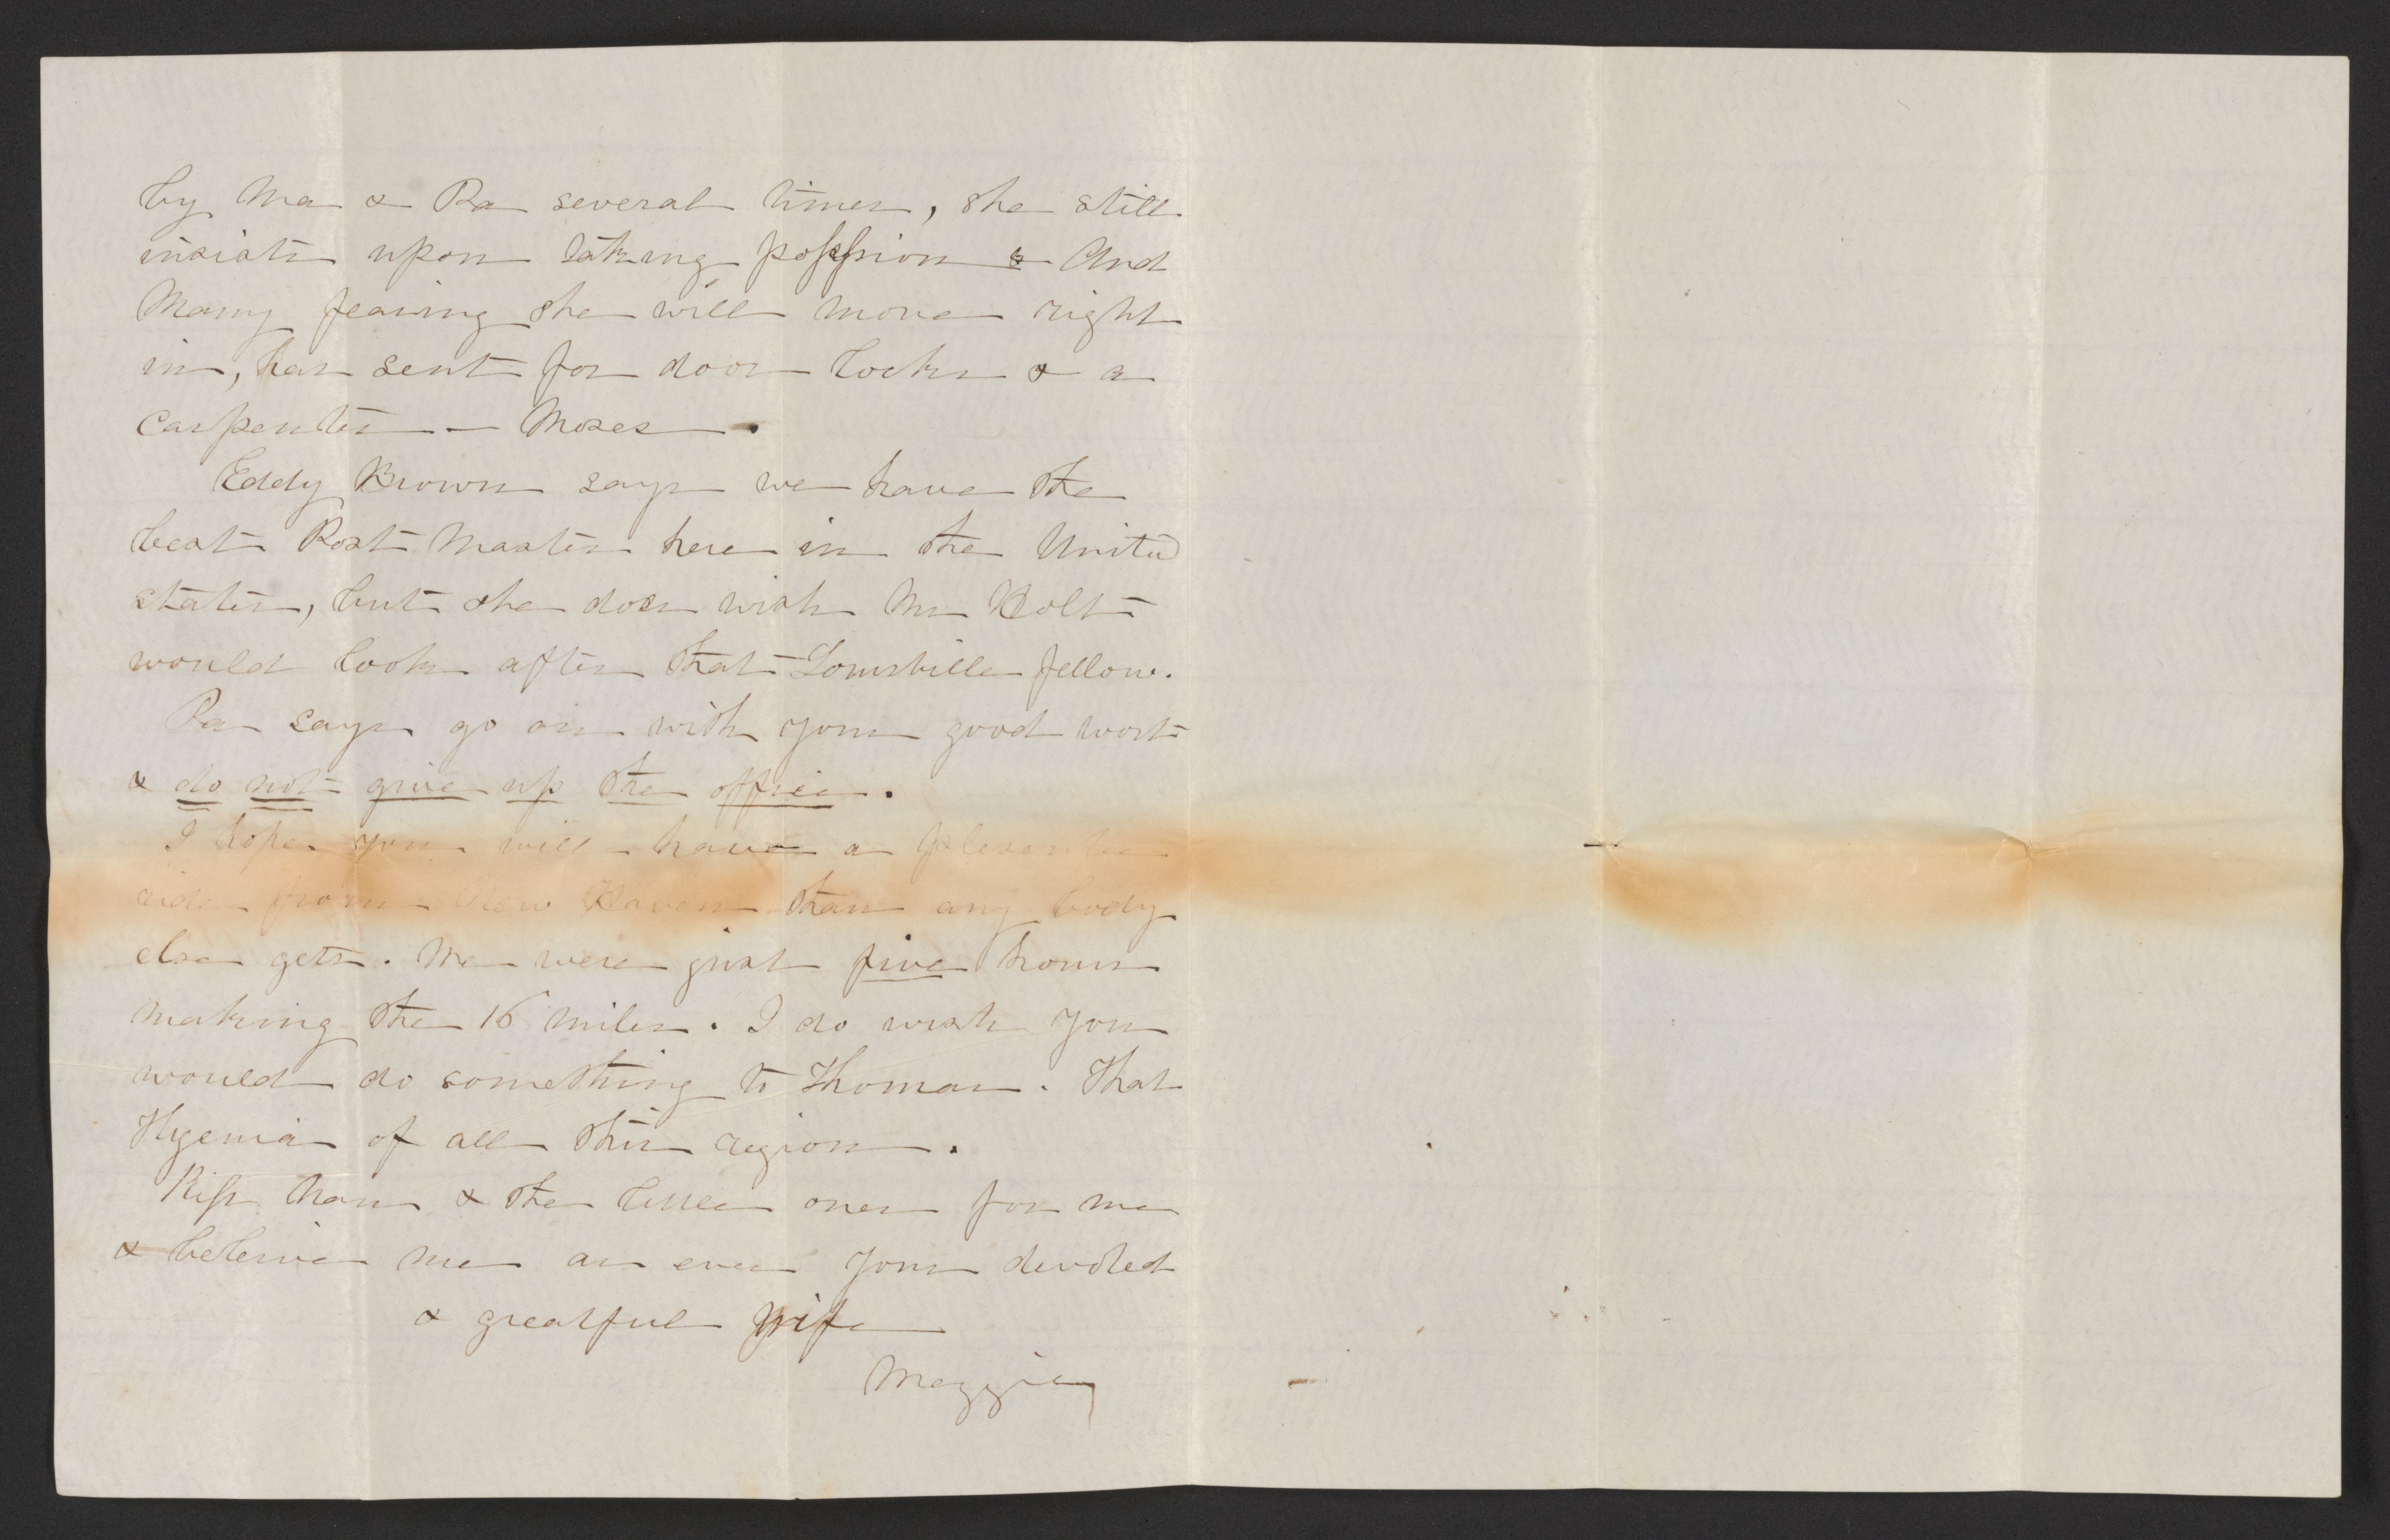 by Ma & Pa several times, she still
insists upon taking possession & And
Mary fearing she will move right
in, has sent for door locks & a
carpenter — Moses.
Eddy Brown says we have the
best Post Master here in the United
states, but she does wish Mr Holt
would look after that Louisville fellow.
Pa says go on with your good work
& do not give up the office.
I hope you will have a pleasanter
ride from New Haven than any body
else gets. We were just five hours
making the 16 miles. I do wish you
would do something to Thomas. That
Hyenia of all this region.
Kiss & the little ones for me
& beleive me as ever your devoted
& greatful wife
Maggie